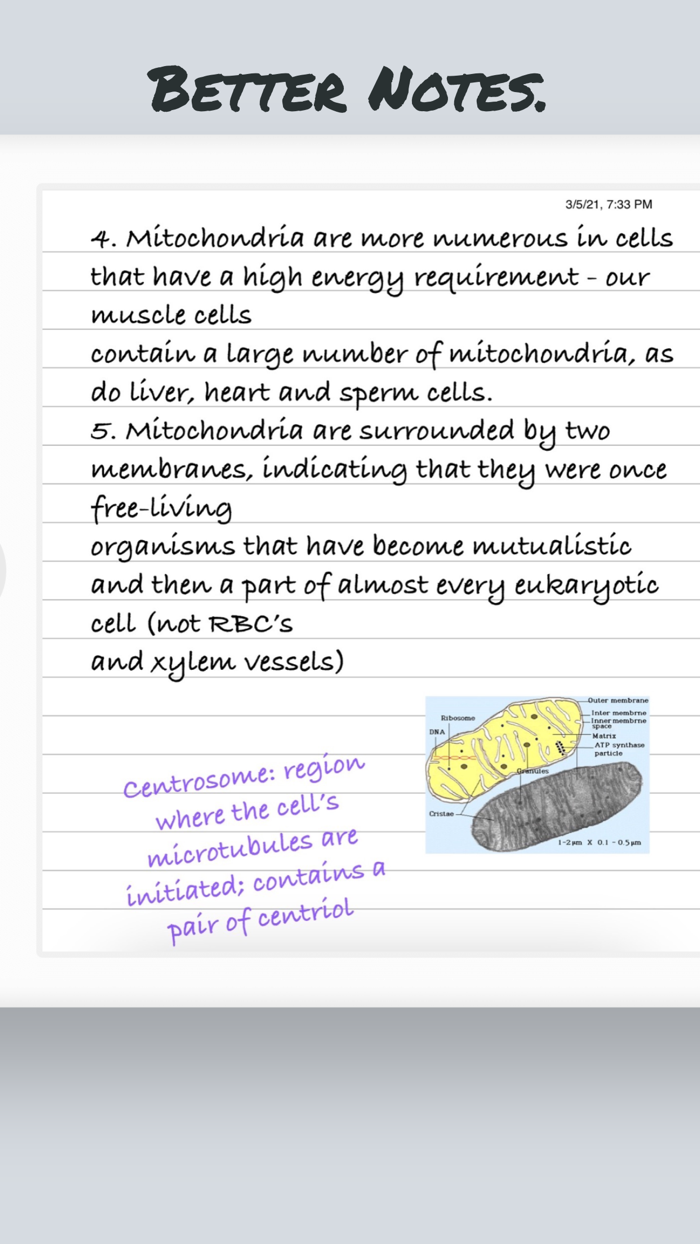 BETTER NOTES.
3/5/21, 7:33 PM
4. Mitochondria are more numerous in cells
that have a high energy requirement - our
muscle cells
contain a large number of mitochondria, as
do liver, heart and sperm cells.
5. Mitochondria are surrounded by two
membranes, indicating that they were once
free-living
organisms that have become mutualistic
and then a part of almost every eukaryotic
cell (not RBC's
and xylem vessels)
Outer membrane
Inter membrne
Inner membrne
space
Matrix
ATP synthase
particle
Ribosome
DNA
Granules
Cristae
1-2µm X 0.1 - 0.5µm
Centrosome: region
where the cell's
microtubules are
initiated; contains a
pair of centriol